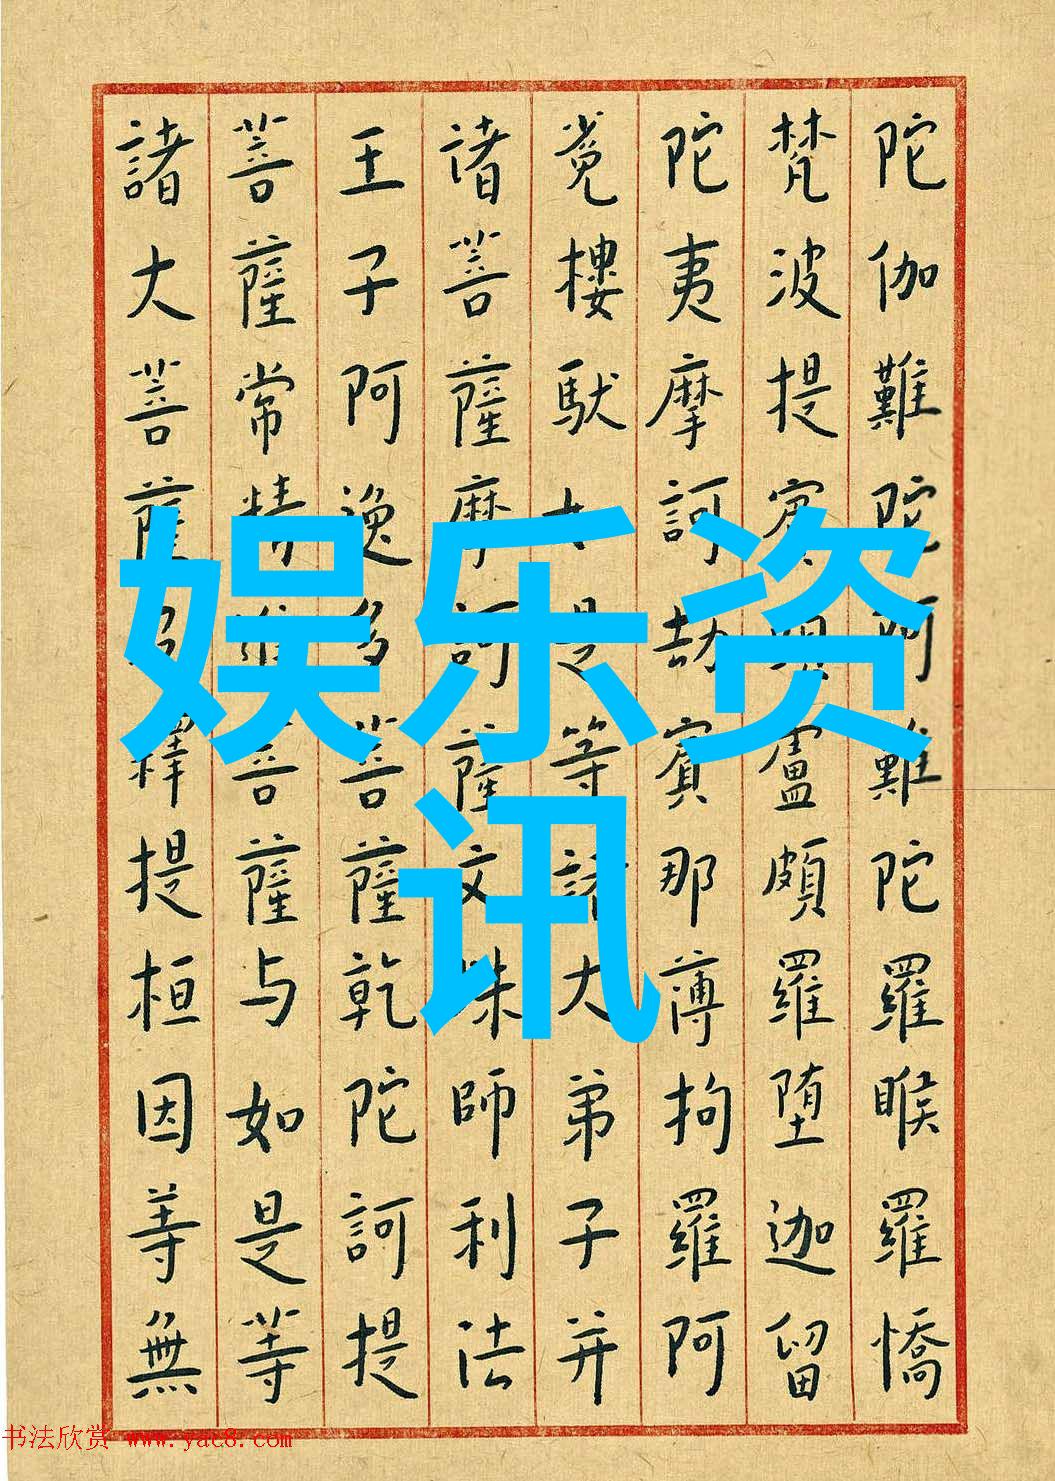 陀伽難陀阿難陀羅睺羅憍
梵波提賓頭盧頗羅堕迦留
陀夷摩訶劫賓那薄拘羅阿
樓馱是等諸大弟子并
诸菩薩摩訶薩文殊師利法
王子阿逸多菩薩乾陀訶提
菩薩常精進菩薩与如是等
諸大菩薩及釋提桓因等無
娱乐资
讯
书法欣赏 www.yac8.com